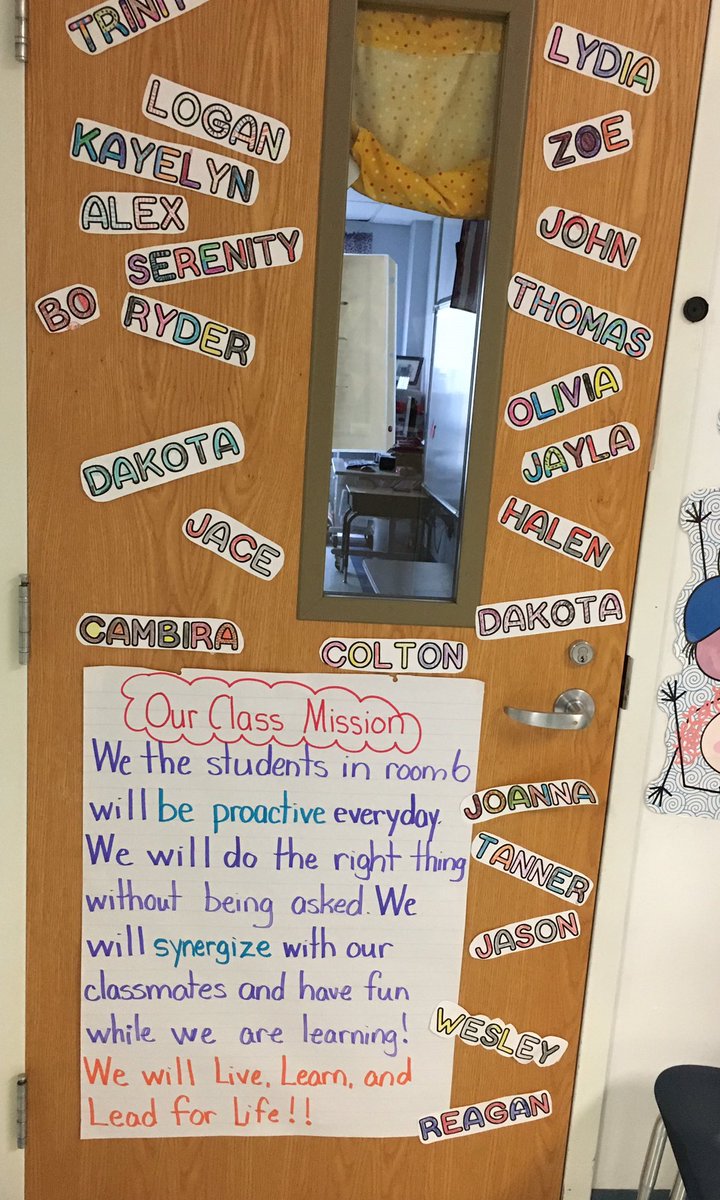 LOGAN
KAYELYN
ALEX
SERENITY
BO
RYDER
DAKOTA
JACE
CAMBIRA
COLTON
LYDIA
ZOE
JOHN
THOMAS
OLIVIA
JAYLA
HALEN
DAKOTA
JOANNA
TANNER
JASON
WESLEY
REAGAN
Our Class Mission
We the students in room 6
will be proactive everyday.
We will do the right thing
without being asked. We
will synergize with our
classmates and have fun
while we are learning!
We will Live, Learn, and
Lead for Life!!